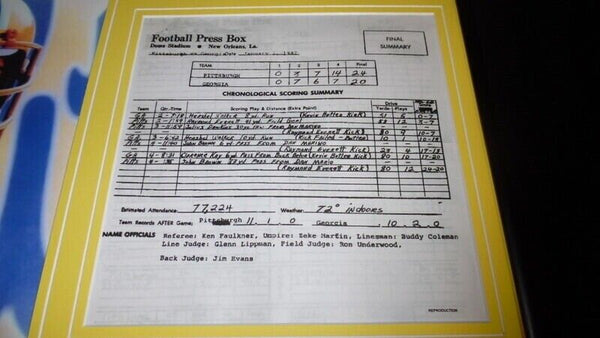 Football Press Box
Dome Stadium • New Orleans, La.
Pittsburgh vs Georgia Date January 1, 1982
FINAL
SUMMARY
TEAM 1 2 3 4 Final
PITTSBURGH 0 3 7 14 24
GEORGIA 0 7 6 7 20
CHRONOLOGICAL SCORING SUMMARY
Team Qtr-Time Scoring Play & Distance (Extra Point) Drive
Yards Plays
GA 2- Run (Kevin Butler Kick) 6 0-7
Pitts Everett 41 yd. Field Goal 3-7
Pitts 3- Dawkins yd. From Dan Marino
(Raymond Everett Kick) 80
GA 3- Herschel Walker 10 yd. Run (Kick Failed - Butler)
Pitts John Brown 6 yd Pass From Dan MARINO
(Raymond Everett Kick) 4 17-13
GA 4-8:31 Clarence Kay 6 yd. Pass From Buck Belue (Kevin Butler Kick) 80 10 17-20
Pitts John Brown 33 yd Pass From Dan Marino
(Raymond Everett Kick) 80 12 24-20
Estimated Attendance: 77,224 Weather: 72° indoors
Team Records AFTER Game: Pittsburgh 11 1 0 Georgia 10 2 0
NAME OFFICIALS Referee: Ken Faulkner, Umpire: Zeke Martin, Linesman: Buddy Coleman
Line Judge: Glenn Lippman, Field Judge: Ron Underwood,
Back Judge: Jim Evans
REPRODUCTION